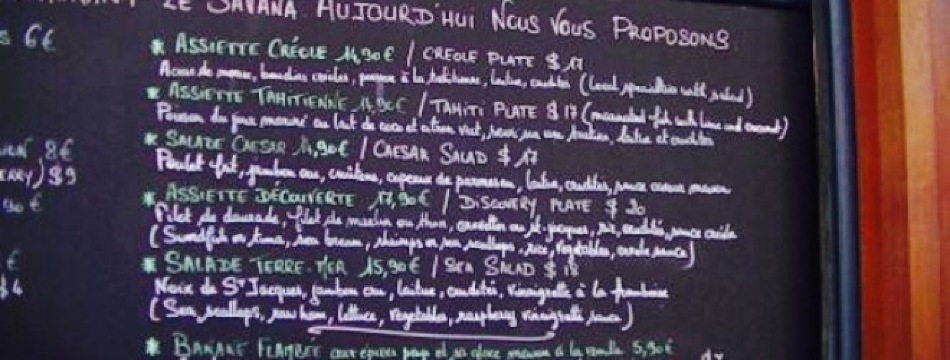 LE SAVANA AUJOURD'HUI NOUS VOUS PROPOSONS
6€
* ASSIETTE CRÉOLE 14,90€ / CREOLE PLATE $ 17
Acras de morue, boudins créoles, poisson à la tahitienne, laitue, crudités (Local specialities with salad)
* ASSIETTE TAHITIENNE 14,90€ / TAHITI PLATE $ 17 (marinated fish with lime and coconut)
Poisson du jour mariné au lait de coco et citron vert, laitue et crudités
8€
* SALADE CAESAR 14,90€ / CAESAR SALAD $ 17
$9
Poulet frit, jambon cru, croûtons, copeaux de parmesan, laitue, crudités, sauce caesar maison
* ASSIETTE DÉCOUVERTE 17,90€ / DISCOVERY PLATE $ 20
90€
Filet de daurade, filet de marlin ou thon, crevettes ou st jacques, riz, crudités, sauce créole
(Swordfish or tuna, sea bream, shrimps or sea scallops, rice, vegetables, creole sauce)
€
* SALADE TERRE-MER 15,90€ / SEA SALAD $ 18
$4
Noix de St Jacques, jambon cru, laitue, crudités, vinaigrette à la framboise
(Sea scallops, raw ham, lettuce, vegetables, raspberry vinaigrette sauce)
* BANANE FLAMBÉE aux épices pays et sa glace maison à la vanille 5,90€